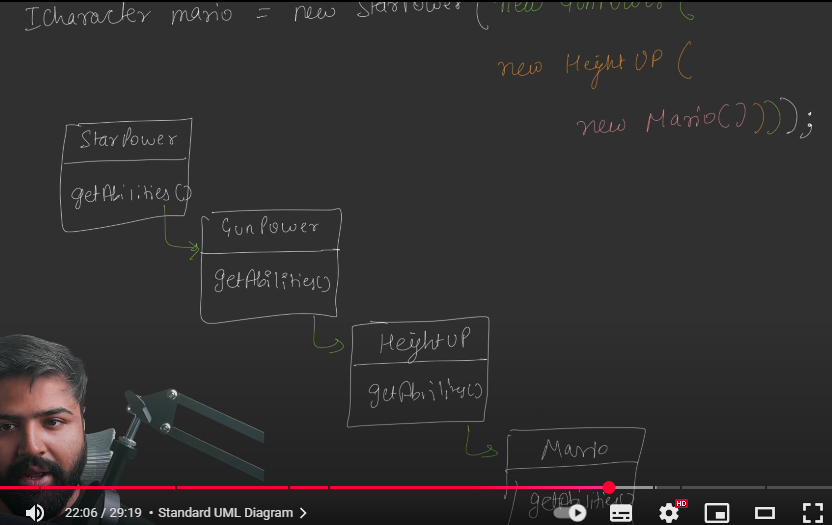 Icharacter mario = new StarPower( new GunPower (
new HeightUP (
new Mario())));
StarPower
getAbilities()
GunPower
getAbilities()
HeightUP
getAbilities()
Mario
getAbilities()
22:06 / 29:19 • Standard UML Diagram
HD